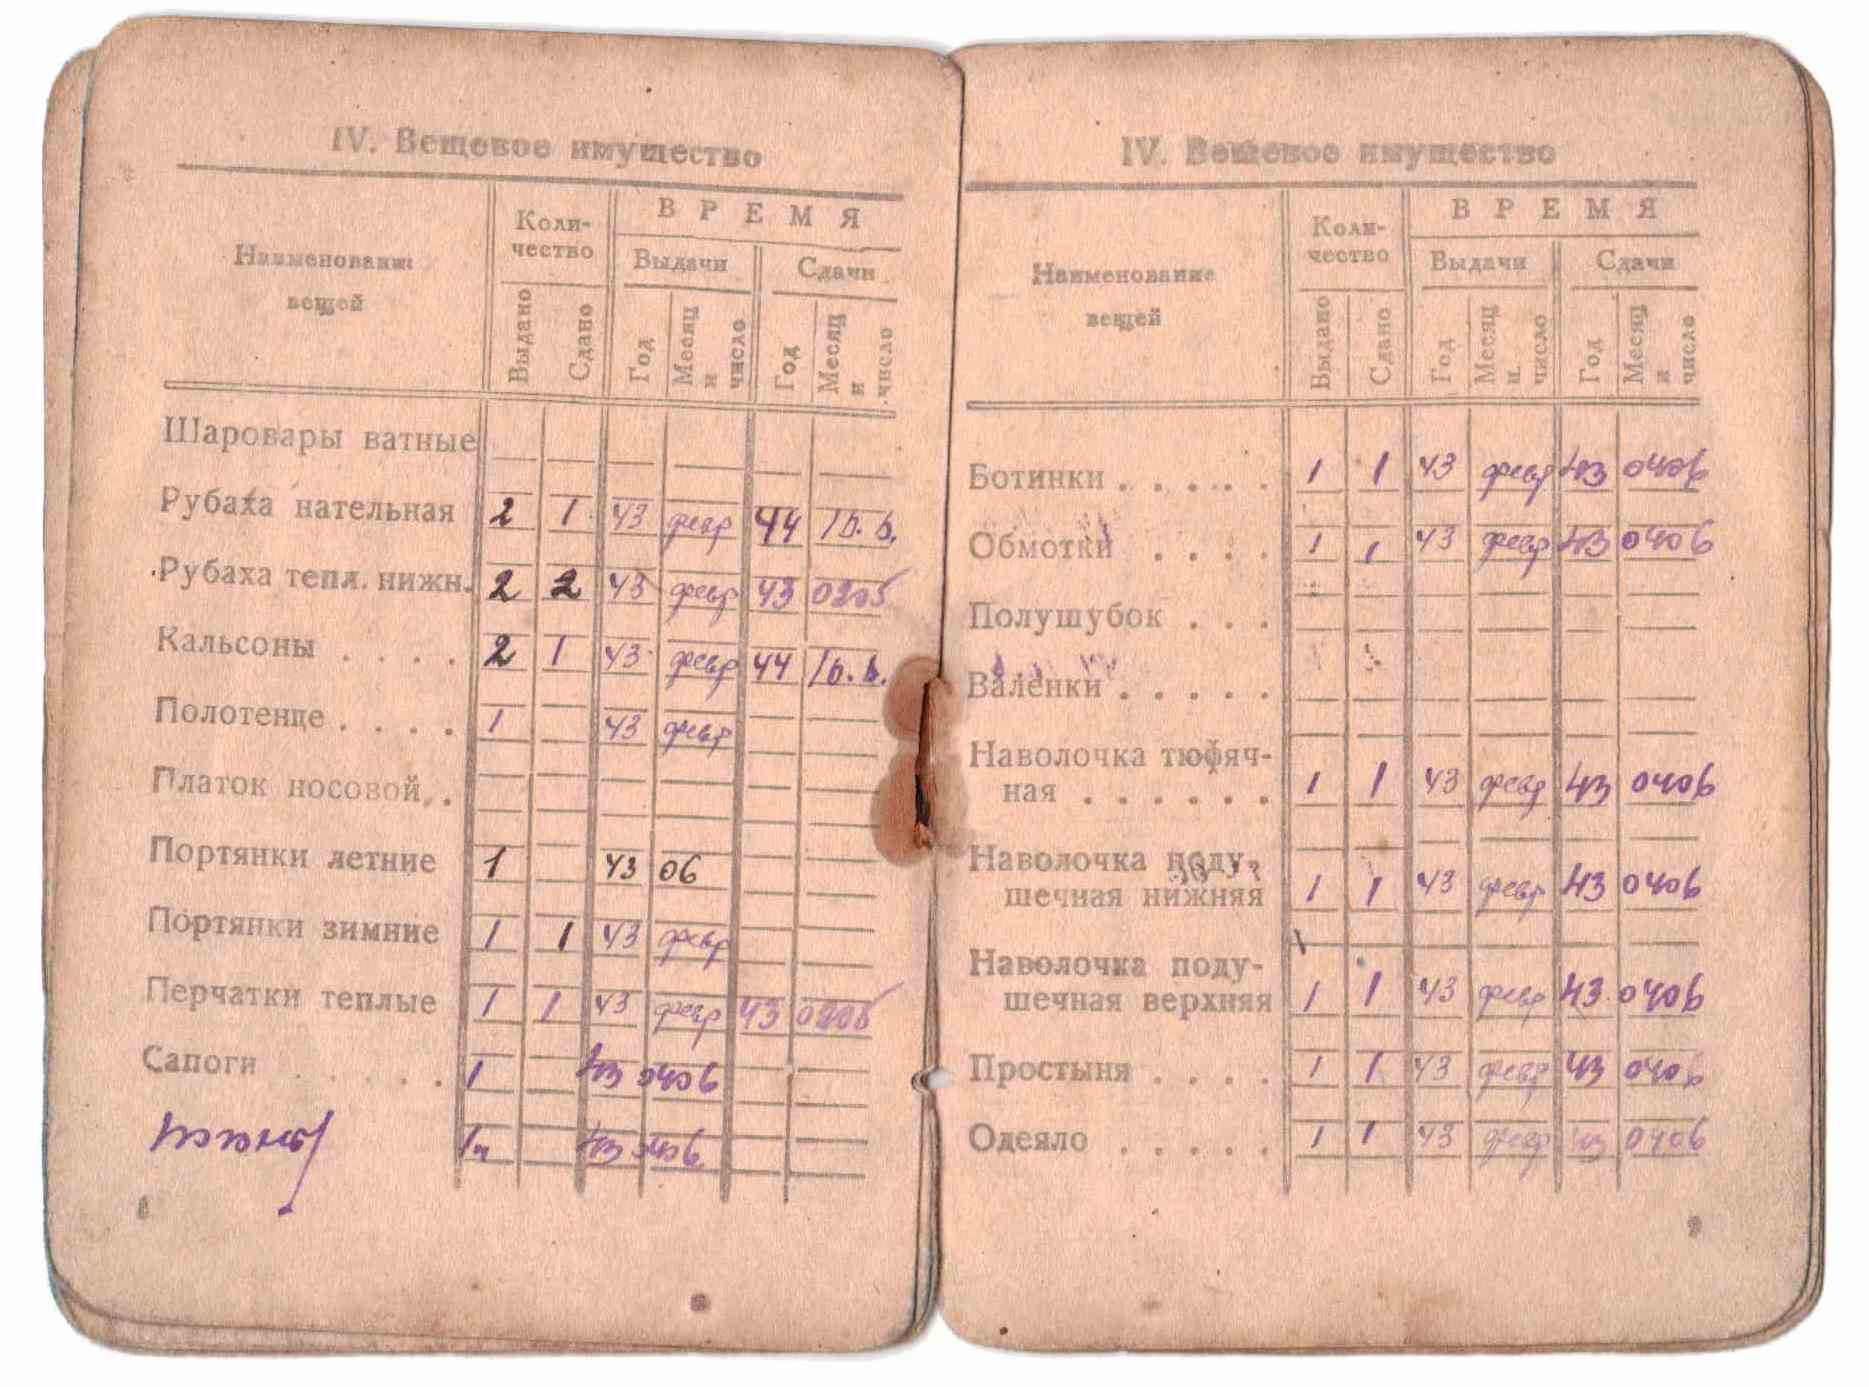 IV. Вещевое имущество
Наименование вещей
Коли-
чество
ВРЕМЯ
Выдачи
Сдачи
Выдано
Сдано
Год
Месяц и число
Год
Месяц и число
Шаровары ватные
Рубаха нательная 2 1 43 февр 44
Рубаха тепл. нижн. 2 2 43 февр 43
Кальсоны . . . . 2 1 43 февр 44
Полотенце . . . . 1 43 февр
Платок носовой . .
Портянки летние 1 43 06
Портянки зимние 1 1 43 февр
Перчатки теплые 1 1 43 февр 43
Сапоги . . . . . 1 43 0406
43
8
IV. Вещевое имущество
Наименование вещей
Коли-
чество
ВРЕМЯ
Выдачи
Сдачи
Выдано
Сдано
Год
Месяц и число
Год
Месяц и число
Ботинки . . . . . 1 1 43 февр 43 0406
Обмотки . . . . 1 1 43 февр 43 0406
Полушубок . . .
Валенки . . . . .
Наволочка тюфяч-
ная . . . . . . 1 1 43 февр 43 0406
Наволочка поду-
шечная нижняя 1 1 43 февр 43 0406
Наволочка поду-
шечная верхняя 1 1 43 февр 43 0406
Простыня . . . . 1 1 43 февр 43 0406
Одеяло . . . . . 1 1 43 февр 43 0406
9